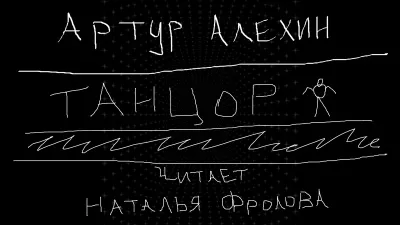 АРТУР АЛЕХИН
ТАНЦОР
ЧИТАЕТ
НАТАЛЬЯ ФРОЛОВА